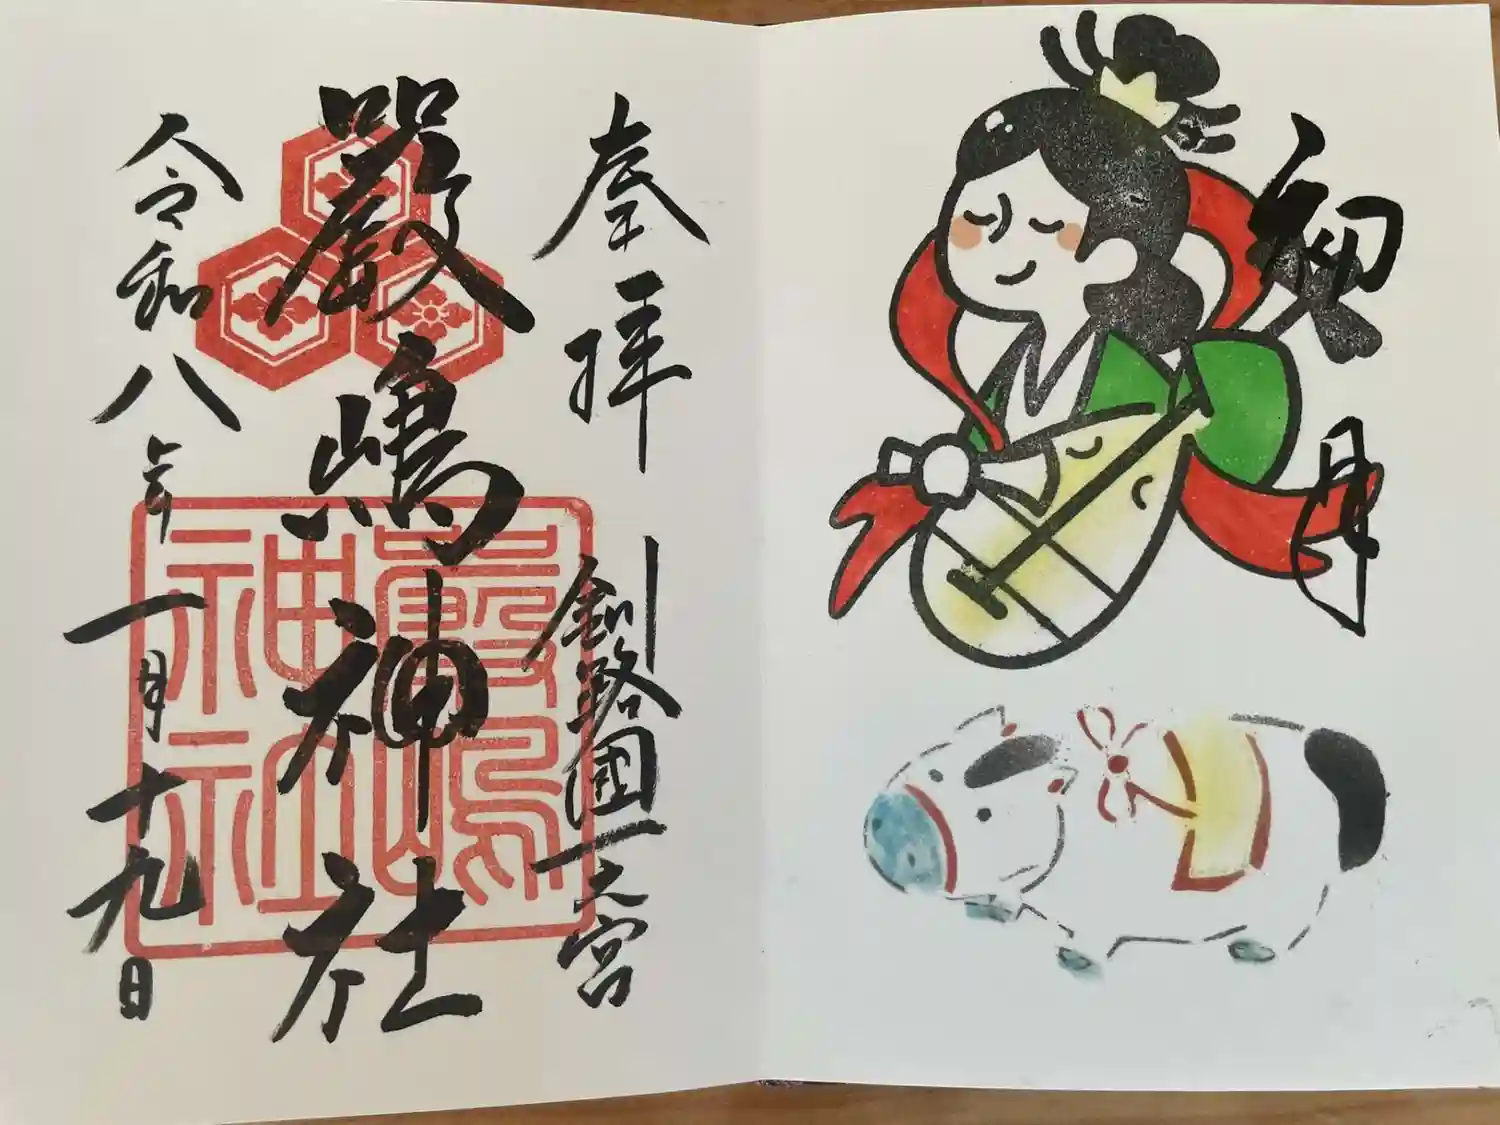 初月
奉拝
釧路國一之宮
嚴嶋神社
嚴嶋
神社
令和八年一月十九日